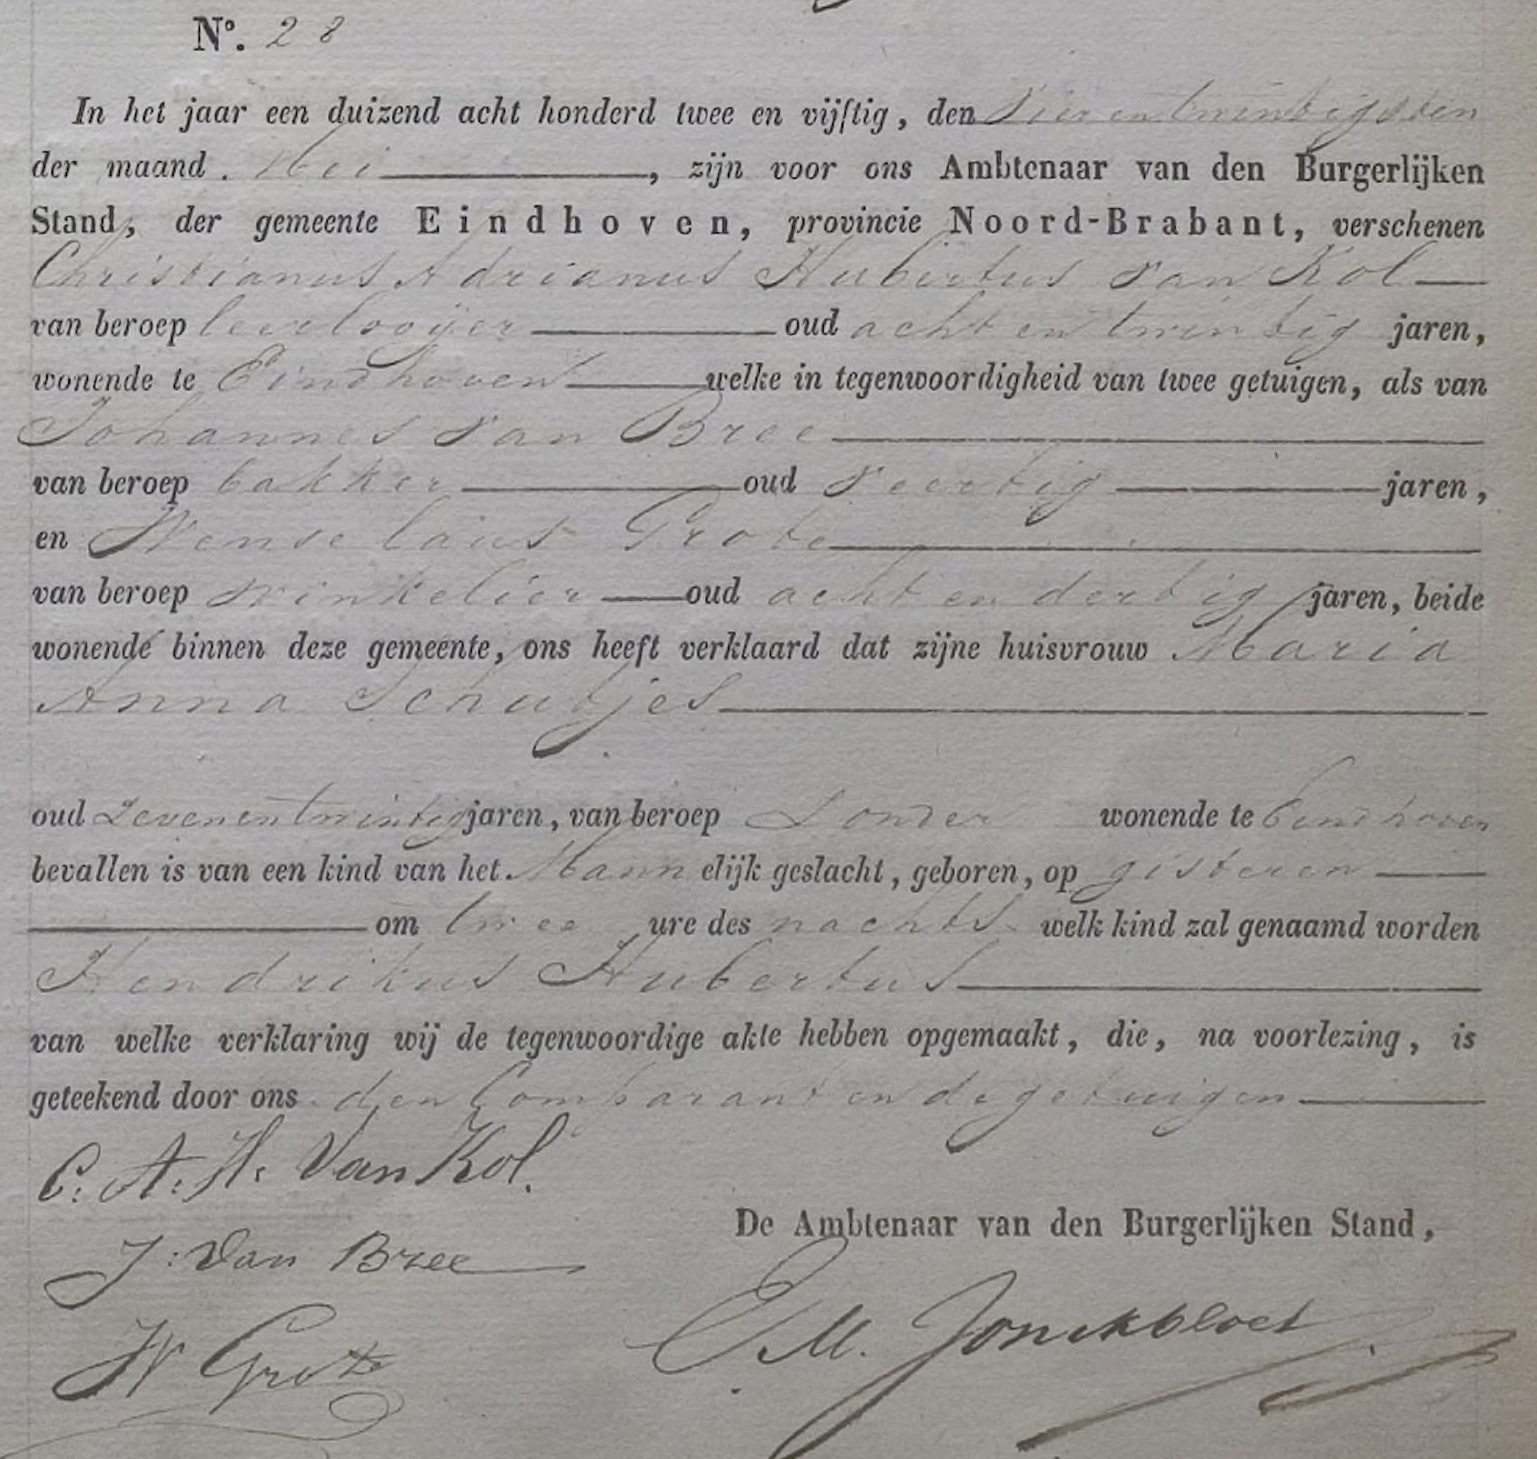 N°. 28
In het jaar een duizend acht honderd twee en vijftig, den vierentwintigsten
der maand Mei, zijn voor ons Ambtenaar van den Burgerlijken
Stand, der gemeente Eindhoven, provincie Noord-Brabant, verschenen
Christianus Adrianus Hubertus van Kol
van beroep leerlooijer oud acht en twintig jaren,
wonende te Eindhoven welke in tegenwoordigheid van twee getuigen, als van
Johannes van Bree
van beroep bakker oud veertig jaren,
en Wenselaus Grote
van beroep winkelier oud acht en dertig jaren, beide
wonende binnen deze gemeente, ons heeft verklaard dat zijne huisvrouw Maria
Anna Schutjes
oud zevenentwintig jaren, van beroep zonder wonende te Eindhoven
bevallen is van een kind van het Mannelijk geslacht, geboren, op gisteren
om twee ure des nachts welk kind zal genaamd worden
Hendrikus Hubertus
van welke verklaring wij de tegenwoordige akte hebben opgemaakt, die, na voorlezing, is
geteekend door ons den Comparant en de getuigen
C. A. H. Van Kol.
J: Van Bree
De Ambtenaar van den Burgerlijken Stand,
W Grote
E M. Jonckbloet